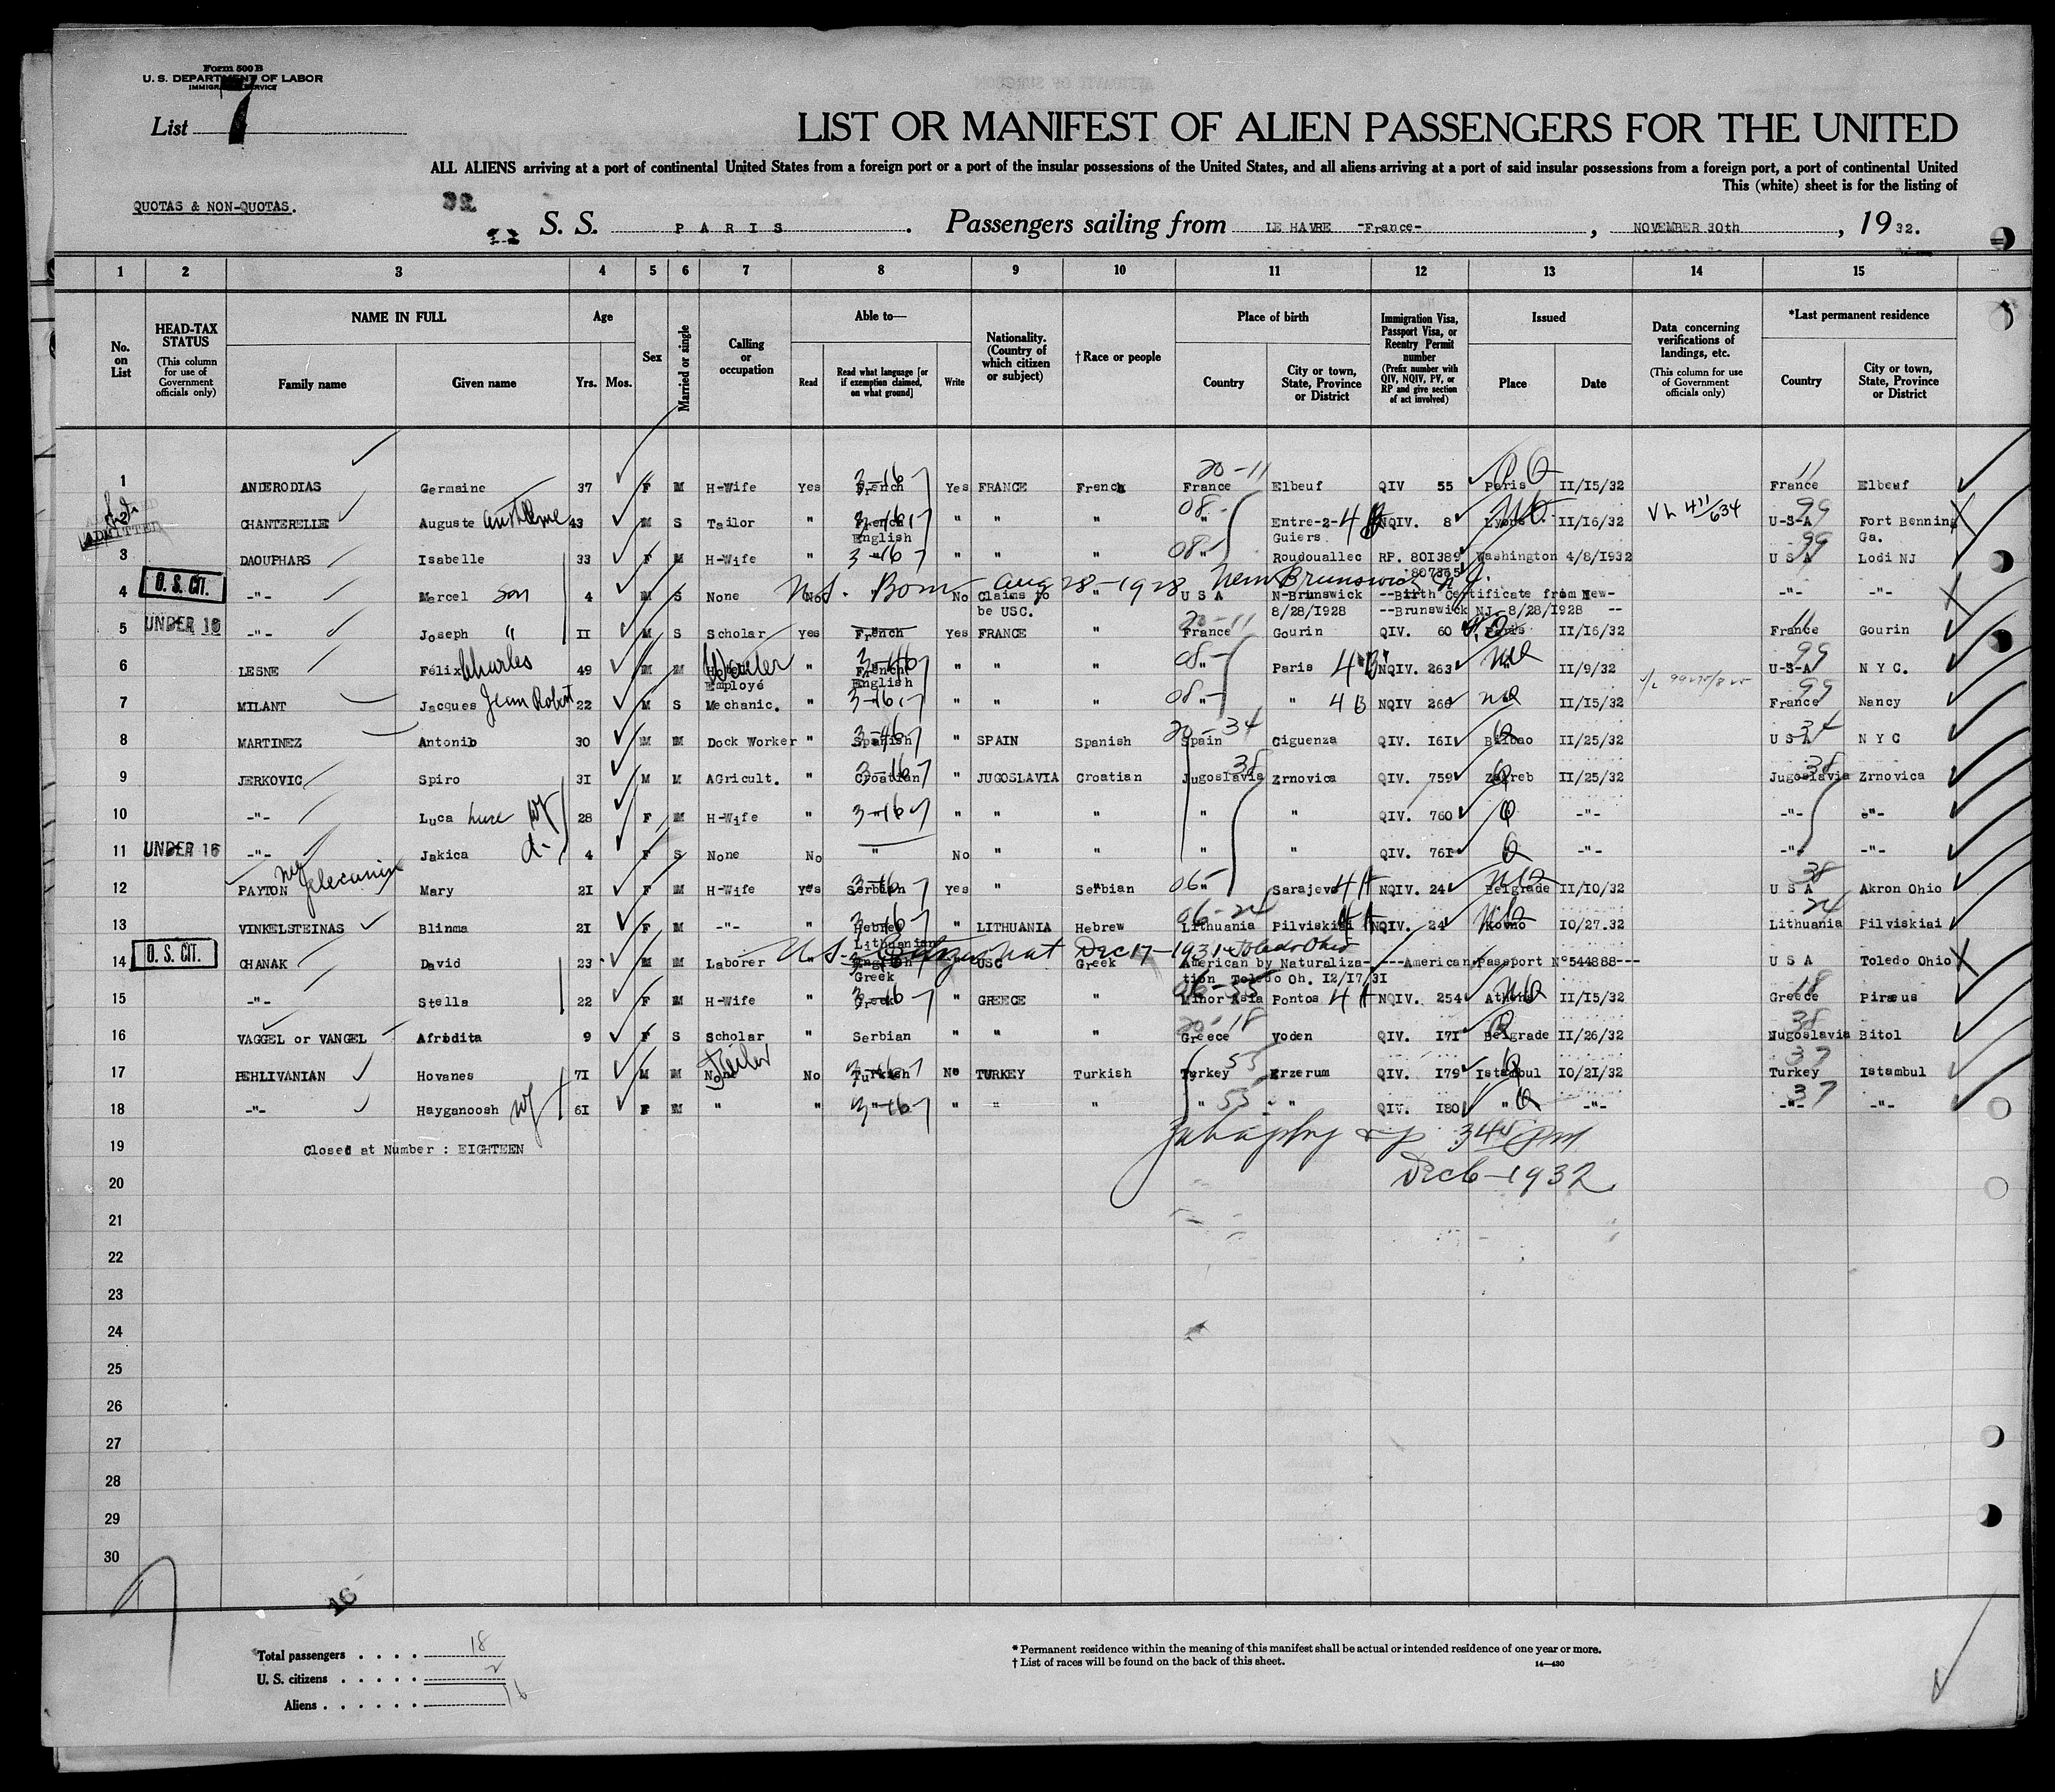 Form 500 B
U. S. DEPARTMENT OF LABOR
IMMIGRATION SERVICE
List 7
LIST OR MANIFEST OF ALIEN PASSENGERS FOR THE UNITED
ALL ALIENS arriving at a port of continental United States from a foreign port or a port of the insular possessions of the United States, and all aliens arriving at a port of said insular possessions from a foreign port, a port of continental United
This (white) sheet is for the listing of
QUOTAS & NON-QUOTAS.
32
S. S. PARIS. Passengers sailing from LE HAVRE -France-, NOVEMBER 30th, 1932.
1 2 3 4 5 6 7 8 9 10 11 12 13 14 15
No. on List
HEAD-TAX STATUS (This column for use of Government officials only)
NAME IN FULL Family name Given name
Age Yrs. Mos.
Sex
Married or single
Calling or occupation
Able to— Read Read what language [or if exemption claimed, on what ground] Write
Nationality. (Country of which citizen or subject)
†Race or people
Place of birth Country City or town, State, Province or District
Immigration Visa, Passport Visa, or Reentry Permit number (Prefix number with QIV, NQIV, PV, or RP and give section of act involved)
Issued Place Date
Data concerning verifications of landings, etc. (This column for use of Government officials only)
*Last permanent residence Country City or town, State, Province or District
1 ANDERODIAS Germaine 37 F M H-Wife Yes French 3-16-7 Yes FRANCE French France 20-11 Elbeuf QIV 55 Paris II/15/32 France 11 Elbeuf
ADMITTED CHANTERELLE Auguste 43 M S Tailor " French English " " " " 08- Entre-2-Guiers 4 NQIV. 8 Lyons II/16/32 V L 411/634 U-S-A 99 Fort Benning Ga.
3 DAOUPHARS Isabelle 33 F M H-Wife " " 3-16-7 " " " " 08- Roudouallec RP. 801389 807365 Washington 4/8/1932 U S A 99 Lodi NJ
4 U. S. CIT. -"- Marcel son 4 M S None No No Claims to be USC. " U S A N-Brunswick 8/28/1928 --Birth Certificate from New- --Brunswick NJ- 8/28/1928 -- -"- -"-
U.S. Born Aug 28-1928 New Brunswick N.J.
5 UNDER 16 -"- Joseph " II M S Scholar Yes French Yes FRANCE " France 20-11 Gourin QIV. 60 Paris II/16/32 France 11 Gourin
6 LESNE Félix Charles 49 M M Hotel Employé Waiter " French English 3-16 " " " " 08- Paris 4 B NQIV. 263 " II/9/32 U-S-A 99 N Y C.
7 MILANT Jacques Jean Robert 22 M S Mechanic. " " 3-16-7 " " " " 08- " 4 B NQIV 266 " II/15/32 France 99 Nancy
8 MARTINEZ Antonio 30 M M Dock Worker " Spanish 3-16-7 " SPAIN Spanish Spain 20-34 Ciguenza QIV. I6I Bilbao II/25/32 U S A 34 N Y C
9 JERKOVIC Spiro 3I M M AGricult. " Croatian 3-16-7 " JUGOSLAVIA Croatian Jugoslavia 38 Zrnovica QIV. 759 Zagreb II/25/32 Jugoslavia 38 Zrnovica
10 -"- Luca Luce wf 28 F M H-Wife " " 3-16-7 " " " " " QIV. 760 -"- -"- -"-
11 UNDER 16 -"- Jakica d- 4 F S None No " No " " " " QIV. 76I -"- -"- -"-
12 PAYTON Mary 2I F M H-Wife Yes Serbian 3-16-7 Yes " Serbian " 06- Sarajevo 4 A NQIV. 24 Belgrade II/10/32 U S A 38 Akron Ohio
13 VINKELSTEINAS Blinma 2I F M -"- " Hebrew Lithuanian 3-16-7 " LITHUANIA Hebrew Lithuania 06-24 Pilviskiai 4 A NQIV. 24 Kovno I0/27.32 Lithuania 24 Pilviskiai
14 U. S. CIT. CHANAK David 23 M M Laborer " English Greek " USC Greek American by Naturaliza- tion Toledo Oh. I2/I7/3I ---American Passport N°544888--- U S A Toledo Ohio
U.S. Citizen Nat Dec 17-1931 Toledo Ohio
15 -"- Stella 22 F M H-Wife " Greek 3-16-7 " GREECE " Minor Asia 06-55 Pontos 4 A NQIV. 254 Athens II/15/32 Greece 18 Piraeus
16 VAGGEL or VANGEL Afrodita 9 F S Scholar " Serbian " " " Greece 20-18 Voden QIV. I7I Belgrade II/26/32 Yugoslavia 38 Bitol
17 PEHLIVANIAN Hovanes 7I M M None No Turkish 3-16-7 No TURKEY Turkish Turkey 55 Erzerum QIV. I79 Istambul I0/2I/32 Turkey 37 Istambul
18 -"- Hayganoosh wf 6I F M " " " 3-16-7 " " " " 55 " QIV. I80 " -"- -"- 37 -"-
19 Closed at Number : EIGHTEEN
345 PM
20 Dec 6-1932
21
22
23
24
25
26
27
28
29
30
16
Total passengers . . . . 18
U. S. citizens . . . . . 2
Aliens . . . . . . 16
* Permanent residence within the meaning of this manifest shall be actual or intended residence of one year or more.
† List of races will be found on the back of this sheet.
14—430